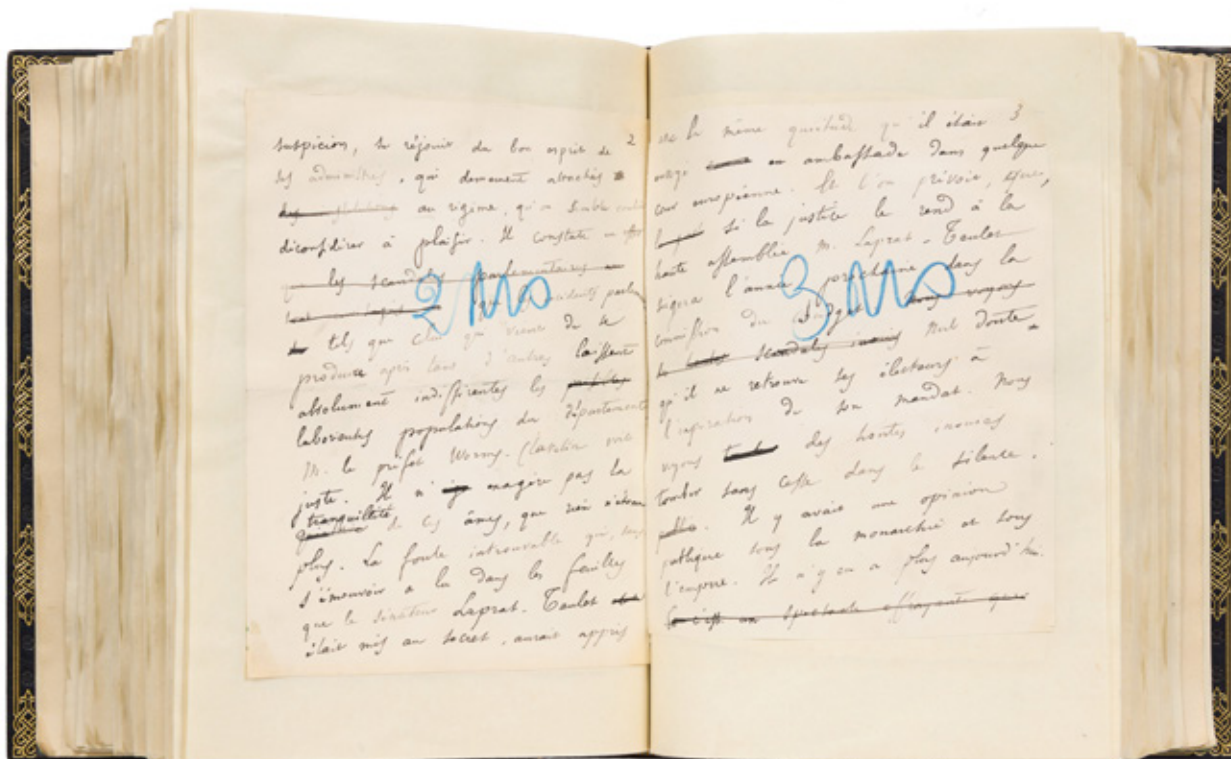 2
suspicion, se réjouir du bon esprit de
ses administrés, qui demeurent attachés
au régime, qu'on semble
déconsidérer à plaisir. Il constate
que les scandales parlementaires
2
que les incidents
tels que celui qui vient de se
produire après tant d'autres laissent
absolument indifférentes les
laborieuses populations du département
M. le préfet Worms-Clavelin voit
juste. Il n' exagère pas la
tranquillité
de ces âmes, que rien n'étonne
plus. La foule introuvable qui, sans
s'émouvoir a lu dans les feuilles
que le sénateur Laprat-Teulet
était mis au secret, aurait appris
3
avec la même quiétude qu'il était
envoyé en ambassade dans quelque
cour européenne. Et l'on prévoit, que,
si la justice le rend à la
haute assemblée M. Laprat-Teulet
siégera l'année prochaine dans la
3
commission du budget nous voyons
scandales inouis Nul doute
qu'il ne retrouve ses électeurs à
l'expiration de son mandat. Nous
voyons des hontes inouies
tomber sans cesse dans le silence.
Il y avait une opinion
publique sous la monarchie et sous
l'empire. Il n'y en a plus aujourd'hui.
c'est un spectacle effrayant que